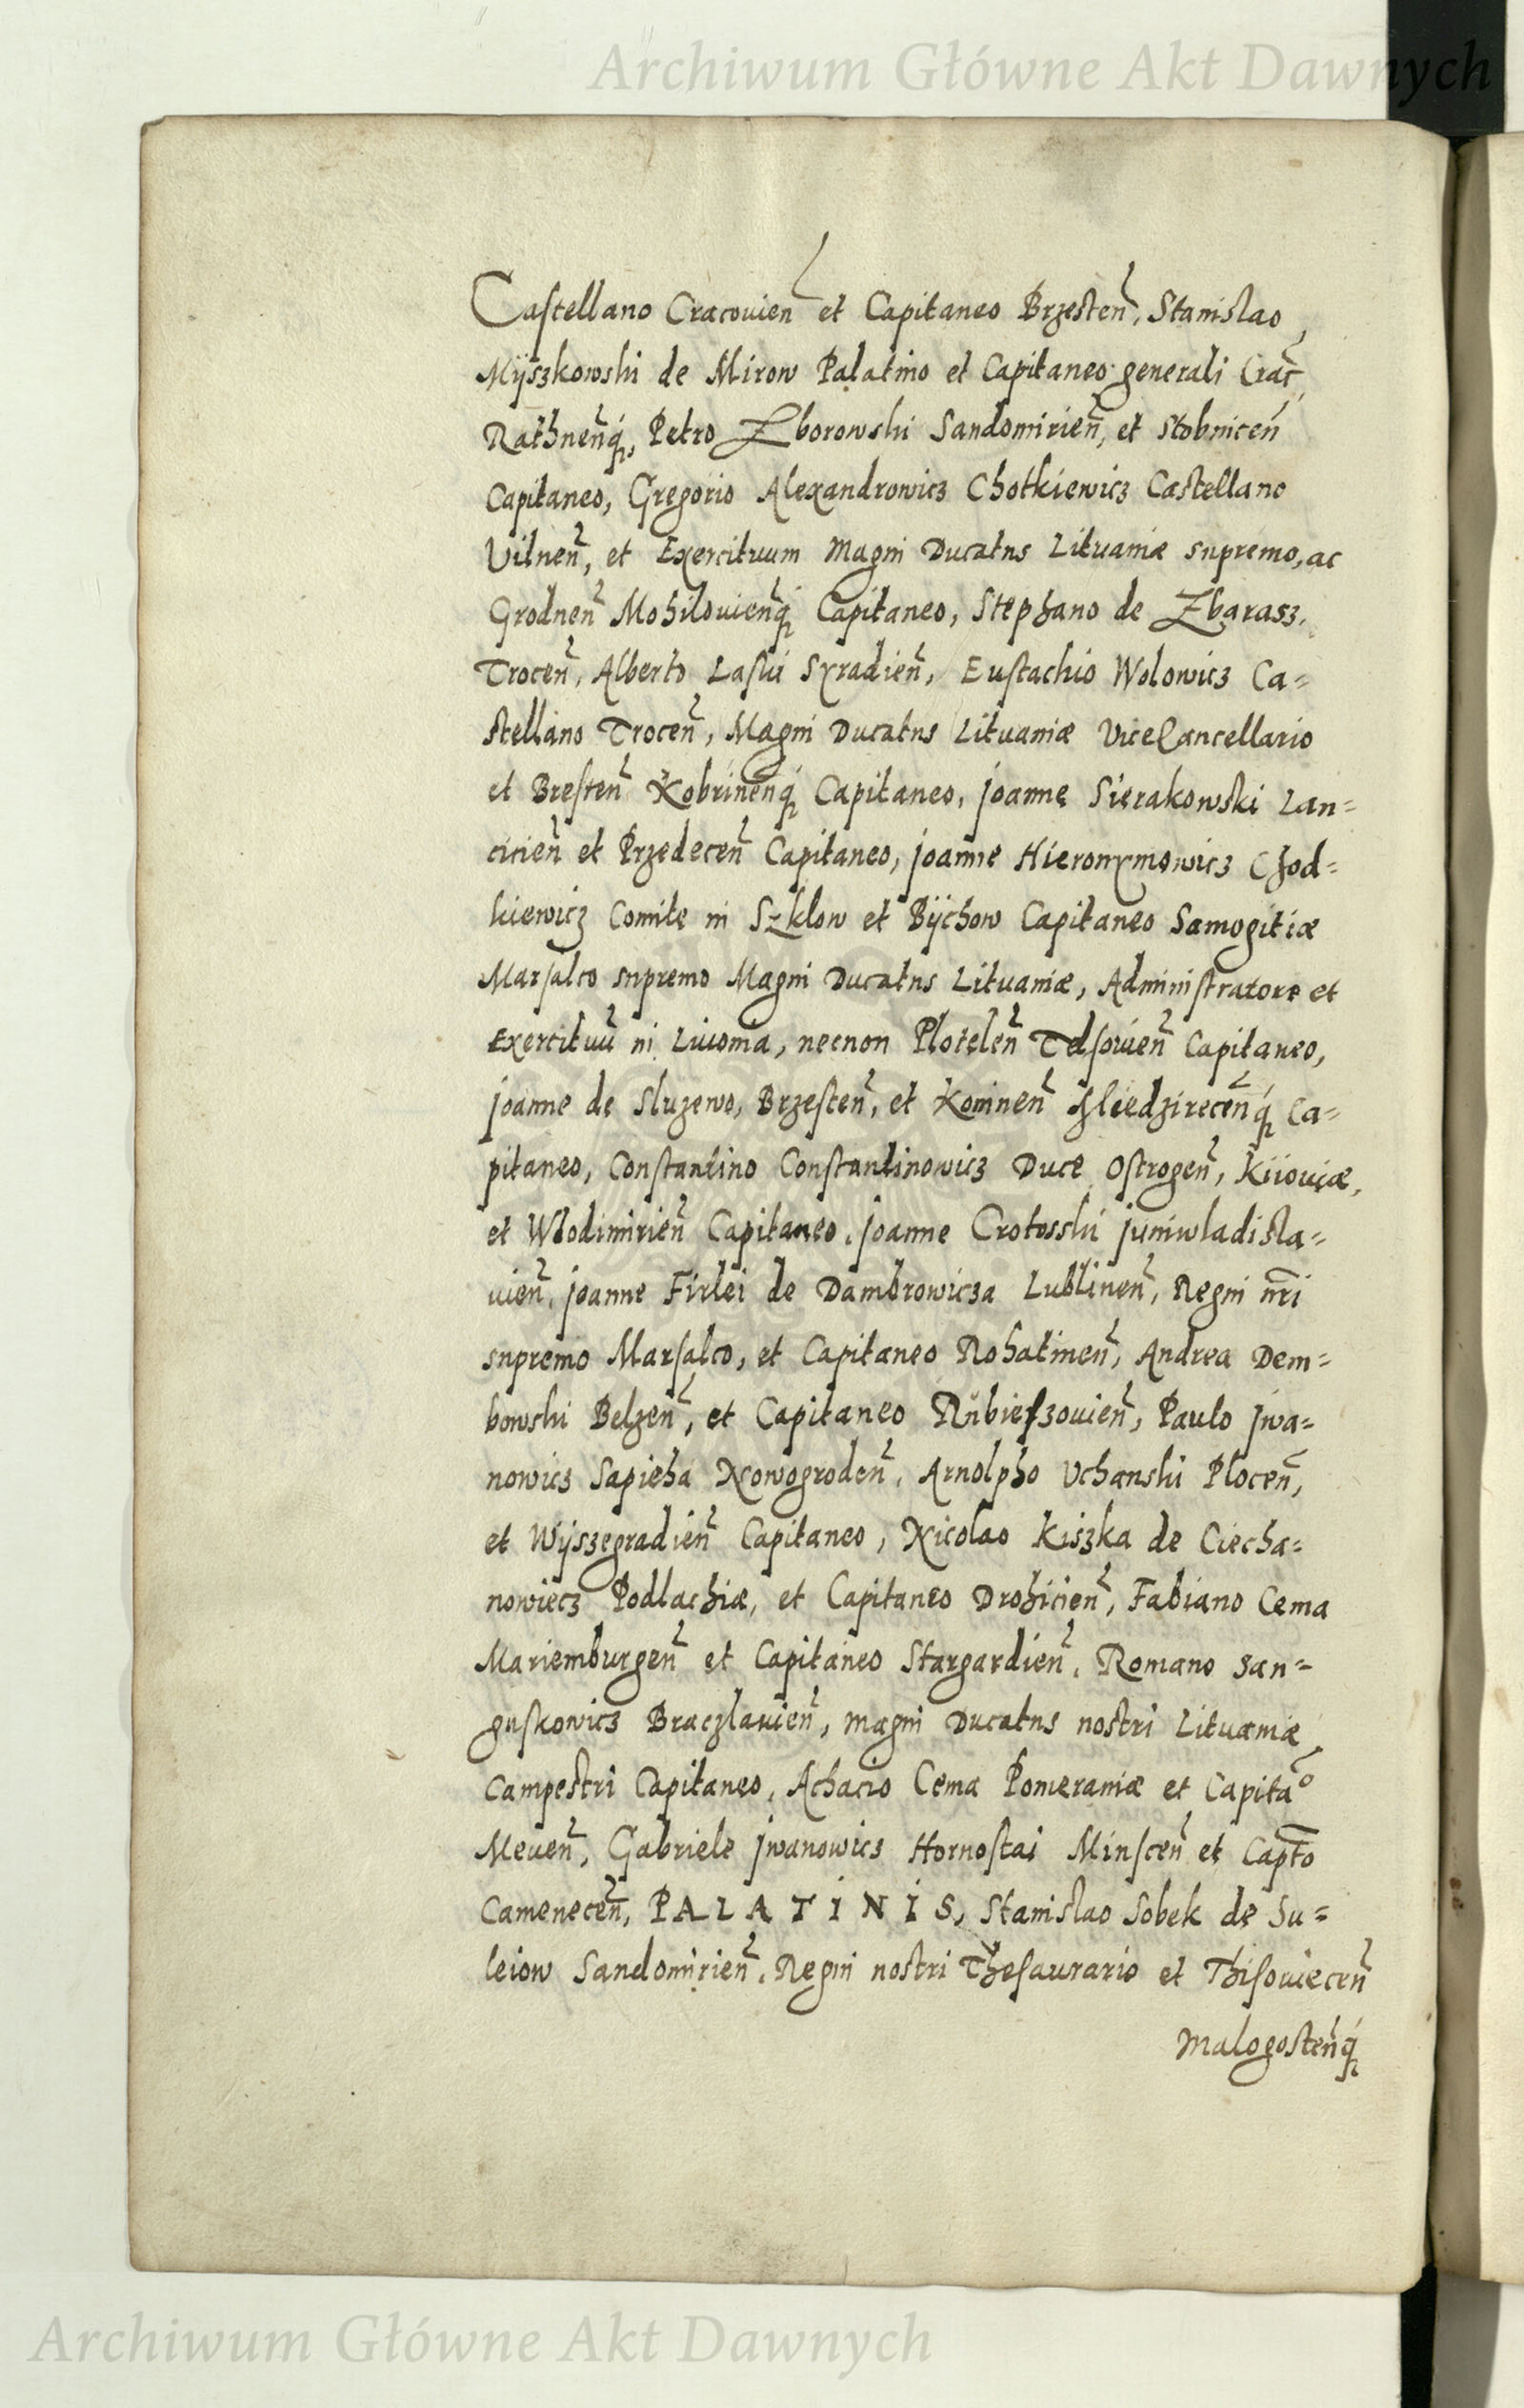 Archiwum Główne Akt Dawnych
Castellano Cracouien̄ et Capitaneo Brzesten̄, Stanislao
Mÿszkowski de Mirow Palatino et Capitaneo generali Crac̄
Rathnen̄q́, Petro Zborowski Sandomirien̄, et Stobnicen̄
Capitaneo, Gregorio Alexandrowicz Chotkiewicz Castellano
Vilnen̄, et Exercituum Magni Ducatus Lituaniæ supremo, ac
Grodnen̄ Mohilouien̄q́ Capitaneo, Stephano de Zbarasz,
Trocen̄, Alberto Laski Syradien̄, Eustachio Wolowicz Ca=
stellano Trocen̄, Magni Ducatus Lituaniæ ViceCancellario
et Bresten̄ Kobrinen̄q́ Capitaneo, Joanne Sierakowski Lan=
cicien̄ et Przedecen̄ Capitaneo, Joanne Hieronymowicz Chod=
kiewicz Comite in Szklow et Bÿchow Capitaneo Samogitiæ
Marsalco supremo Magni Ducatus Lituaniæ, Administratore et
Exercituū in Liuonia, necnon Plotelen̄ Telsouien̄ Capitaneo,
Joanne de Sluzewo, Brzesten̄, et Koninen̄ Miedzirecen̄q́ Ca=
pitaneo, Constantino Constantinowicz Duce Ostrogen̄, Kiiouiæ,
et Wlodimirien̄ Capitaneo, Joanne Crotosski Juniwladisla=
uien̄, Joanne Firlei de Dambrowicza Lublinen̄, Regni nr̄i
supremo Marsalco, et Capitaneo Rohatinen̄, Andrea Dem=
bowski Belzen̄, et Capitaneo Rubieszouien̄, Paulo Jwa=
nowicz Sapieha Nowogroden̄, Arnolpho Vchanski Plocen̄,
et Wÿszegradien̄ Capitaneo, Nicolao Kiszka de Ciecha=
nowiecz Podlachiæ, et Capitaneo Drohicien̄, Fabiano Cema
Mariemburgen̄ et Capitaneo Stargardien̄, Romano San=
guskowicz Braczlauien̄, Magni Ducatus nostri Lituaniæ
Campestri Capitaneo, Achacio Cema Pomeraniæ et Capitā°
Meuen̄, Gabriele Jwanowicz Hornostai Minscen̄ et Capt̄o
Camenecen̄, PALATINIS, Stanislao Sobek de Su=
leiow Sandomirien̄, Regni nostri Thesaurario et Thisouiecen̄
Malogosten̄q́
Archiwum Główne Akt Dawnych